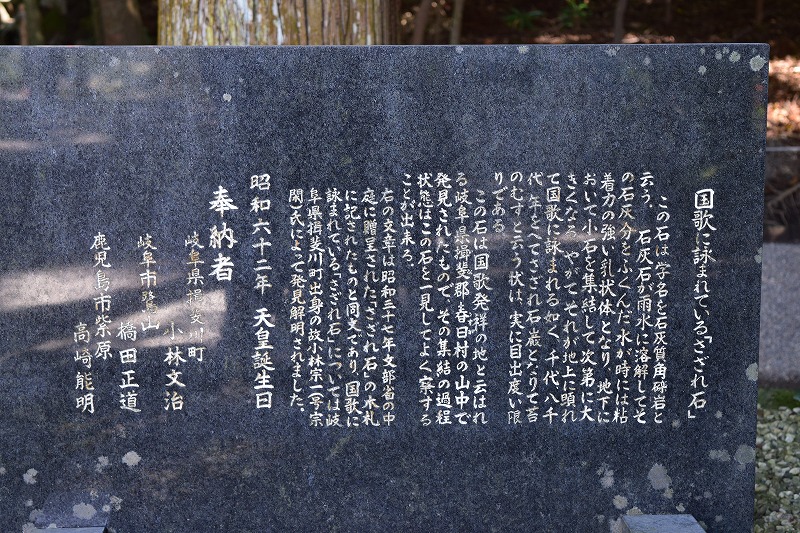 国歌に詠まれている「さざれ石」
この石は、学名を石灰質角礫岩と
云う。石灰石が雨水に溶解してそ
の石灰分をふくんだ水が時には粘
着力の強い乳状体となり、地下に
おいて小石を集結して次第に大
きくなる。やがてそれが地上に顕れ
て国歌に詠まれる如く、千代八千
代年をへてさざれ石巌となりて苔
のむすと云う状は、実に目出度い限
りである。
この石は国歌発祥の地と云はれ
る岐阜県揖斐郡春日村の山中で
発見されたもので、その集結の過程
状態はこの石を一見してよく察する
ことが出来る。
右の文章は昭和三十七年文部省の中
庭に贈呈された「さざれ石」の木札
に記されたものと同文であり、国歌に
詠まれている「さざれ石」については岐
阜県揖斐川町出身の故小林宗一(号宗
閑)氏によって発見解明されました。
昭和六十二年 天皇誕生日
奉納者
岐阜県揖斐川町
小林文治
岐阜市鷺山
橋田正道
鹿児島市紫原
高崎能明